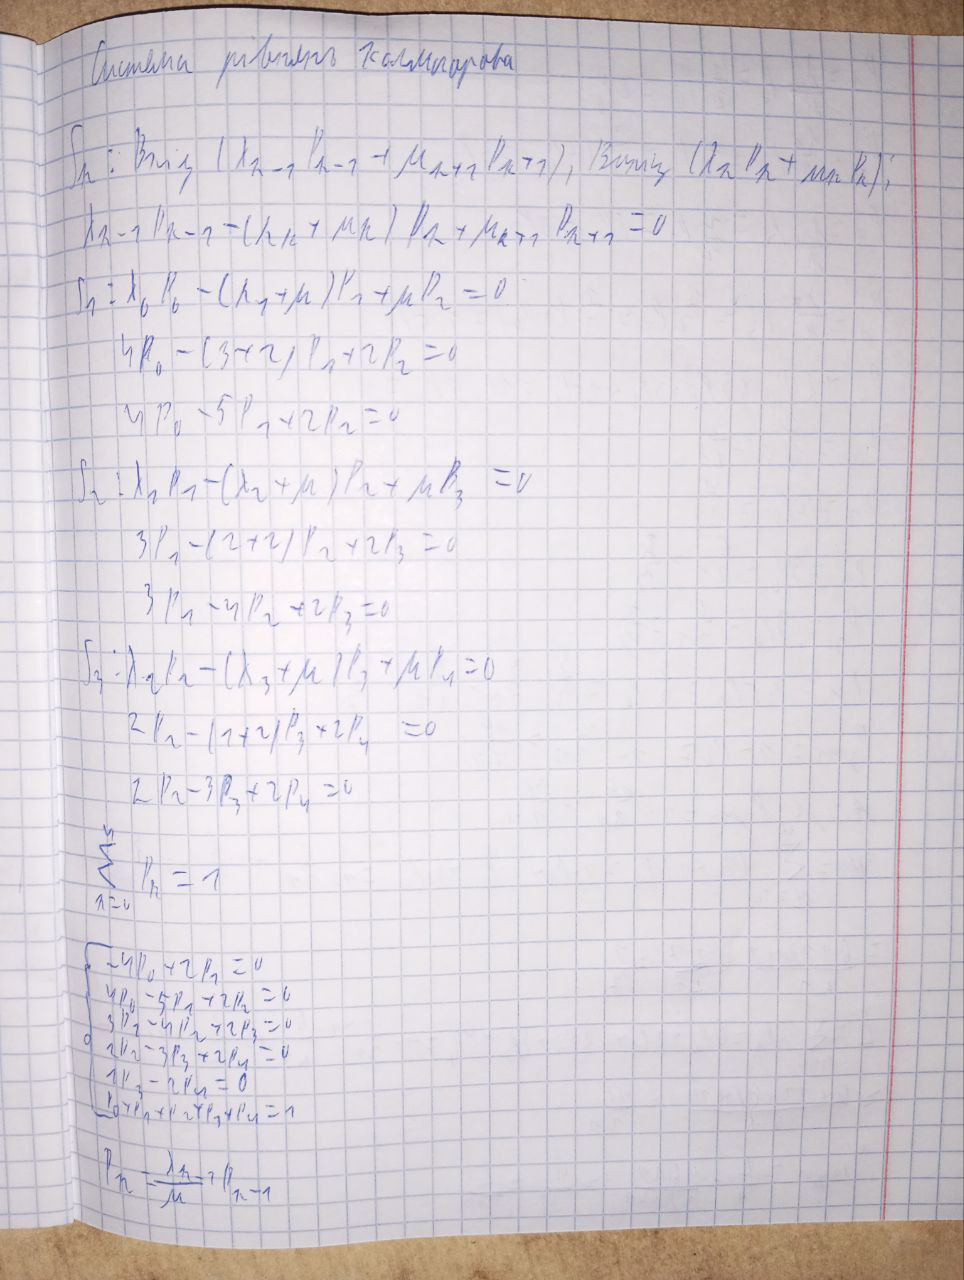 Система рівнянь Колмогорова
S_k: Вхід (λ_{k-1} P_{k-1} + μ_{k+1} P_{k+1}), Вихід (λ_k P_k + μ_k P_k);
λ_{k-1} P_{k-1} - (λ_k + μ_k) P_k + μ_{k+1} P_{k+1} = 0
S_1: λ_0 P_0 - (λ_1 + μ) P_1 + μ P_2 = 0
4P_0 - (3+2) P_1 + 2P_2 = 0
4P_0 - 5P_1 + 2P_2 = 0
S_2: λ_1 P_1 - (λ_2 + μ) P_2 + μ P_3 = 0
3P_1 - (2+2) P_2 + 2P_3 = 0
3P_1 - 4P_2 + 2P_3 = 0
S_3: λ_2 P_2 - (λ_3 + μ) P_3 + μ P_4 = 0
2P_2 - (1+2) P_3 + 2P_4 = 0
2P_2 - 3P_3 + 2P_4 = 0
∑_{k=0}^{4} P_k = 1
-4P_0 + 2P_1 = 0
4P_0 - 5P_1 + 2P_2 = 0
3P_1 - 4P_2 + 2P_3 = 0
2P_2 - 3P_3 + 2P_4 = 0
1P_3 - 2P_4 = 0
P_0 + P_1 + P_2 + P_3 + P_4 = 1
P_k = λ_{k-1}/μ · P_{k-1}